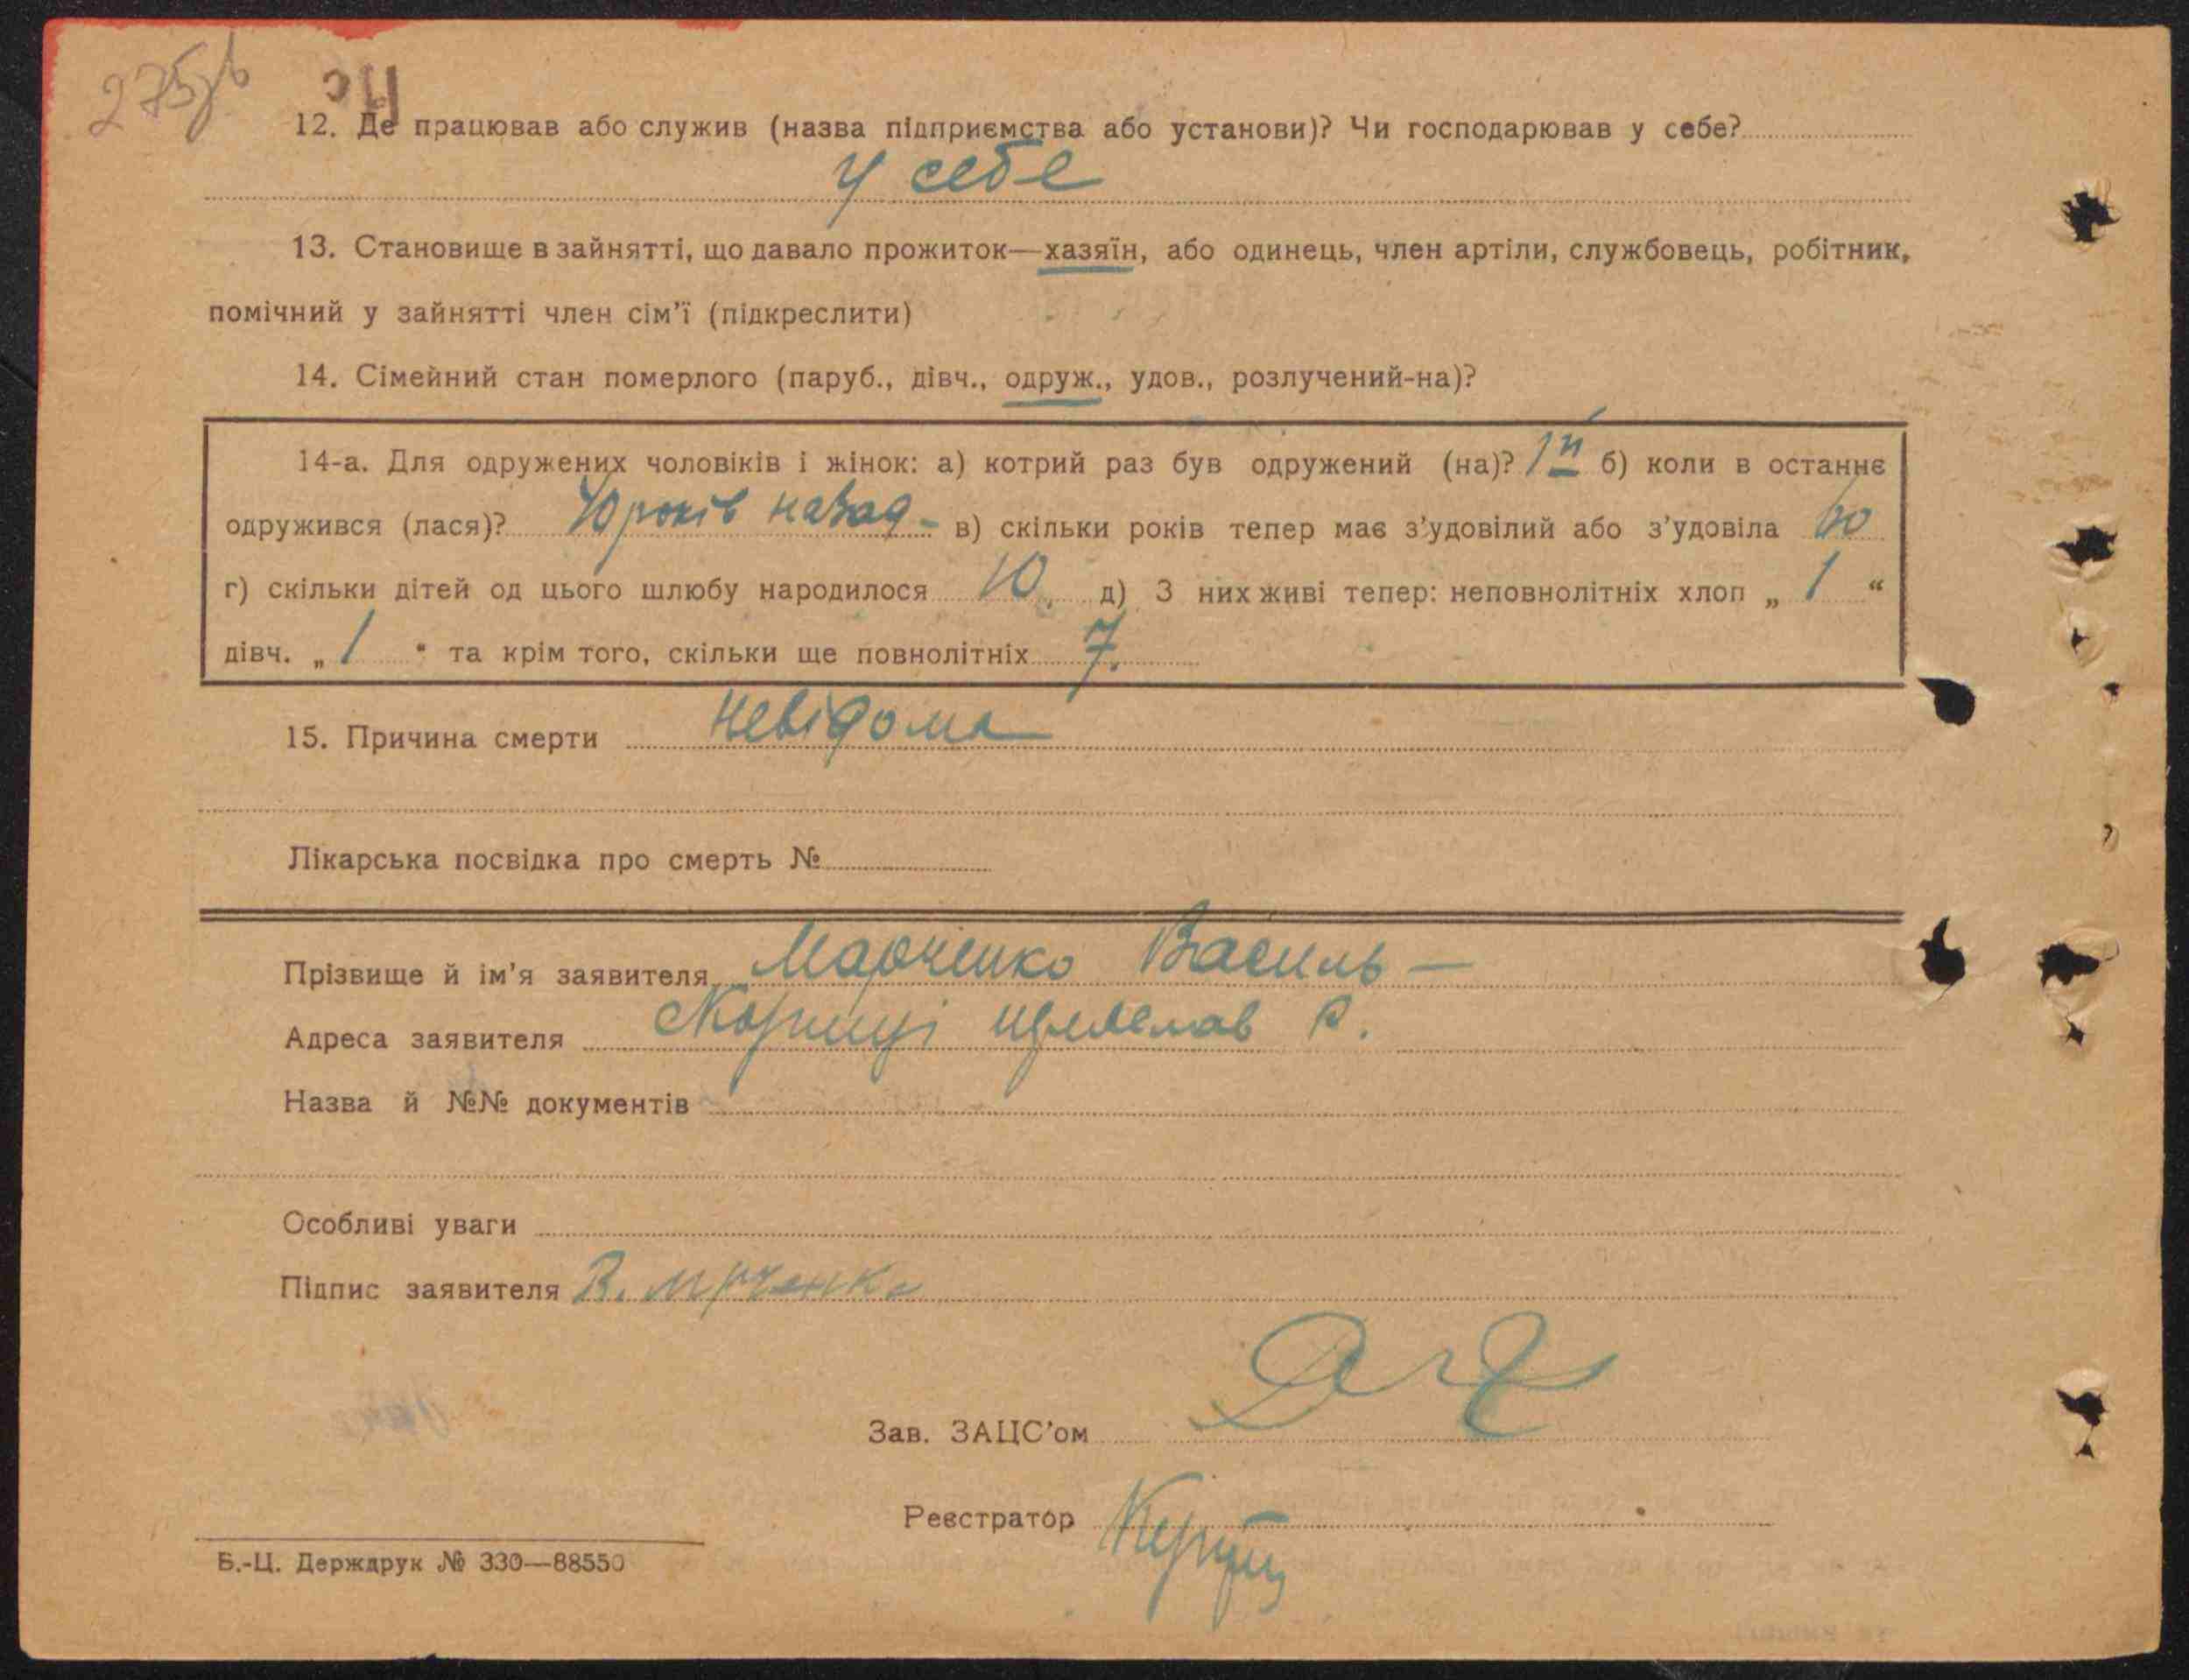 275зв
12. Де працював або служив (назва підприємства або установи)? Чи господарював у себе?
у себе
13. Становище в зайнятті, що давало прожиток—хазяїн, або одинець, член артіли, службовець, робітник,
помічний у зайнятті член сім'ї (підкреслити)
14. Сімейний стан померлого (паруб., дівч., одруж., удов., розлучений-на)?
14-а. Для одружених чоловіків і жінок: а) котрий раз був одружений (на)? 1й б) коли в останнє
одружився (лася)? 40 років назад - в) скільки років тепер має з'удовілий або з'удовіла 60
г) скільки дітей од цього шлюбу народилося 10. д) З них живі тепер: неповнолітніх хлоп „ 1 “
дівч. „ 1 “ та крім того, скільки ще повнолітніх 7.
15. Причина смерти невідома
Лікарська посвідка про смерть №
Прізвище й ім'я заявителя Марченко Василь —
Адреса заявителя р.
Назва й №№ документів
Особливі уваги
Підпис заявителя В. Мрченко
Зав. ЗАЦС'ом
Реєстратор
Б.-Ц. Держдрук № 330—88550